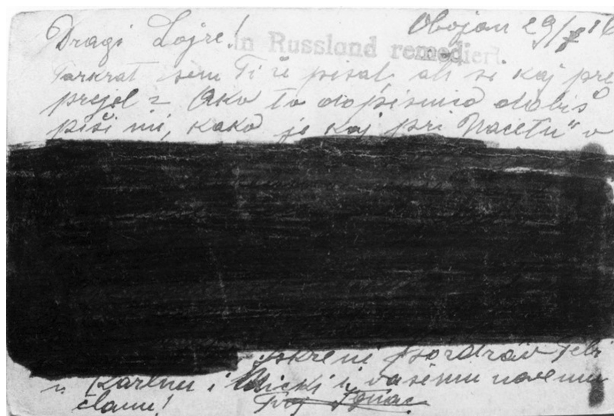 Dragi Lojze! Obojan 29/8 16
In Russland remediert
sem Ti že pisal, ali si kaj pre
prejel? Ako to dopisnico dobiš
piši mi, kako je kaj pri "Nacetu" v
Iskreni pozdrav Tebi
Karlnu i Micki i vašemu novemu
članu! Tvoj Ignac